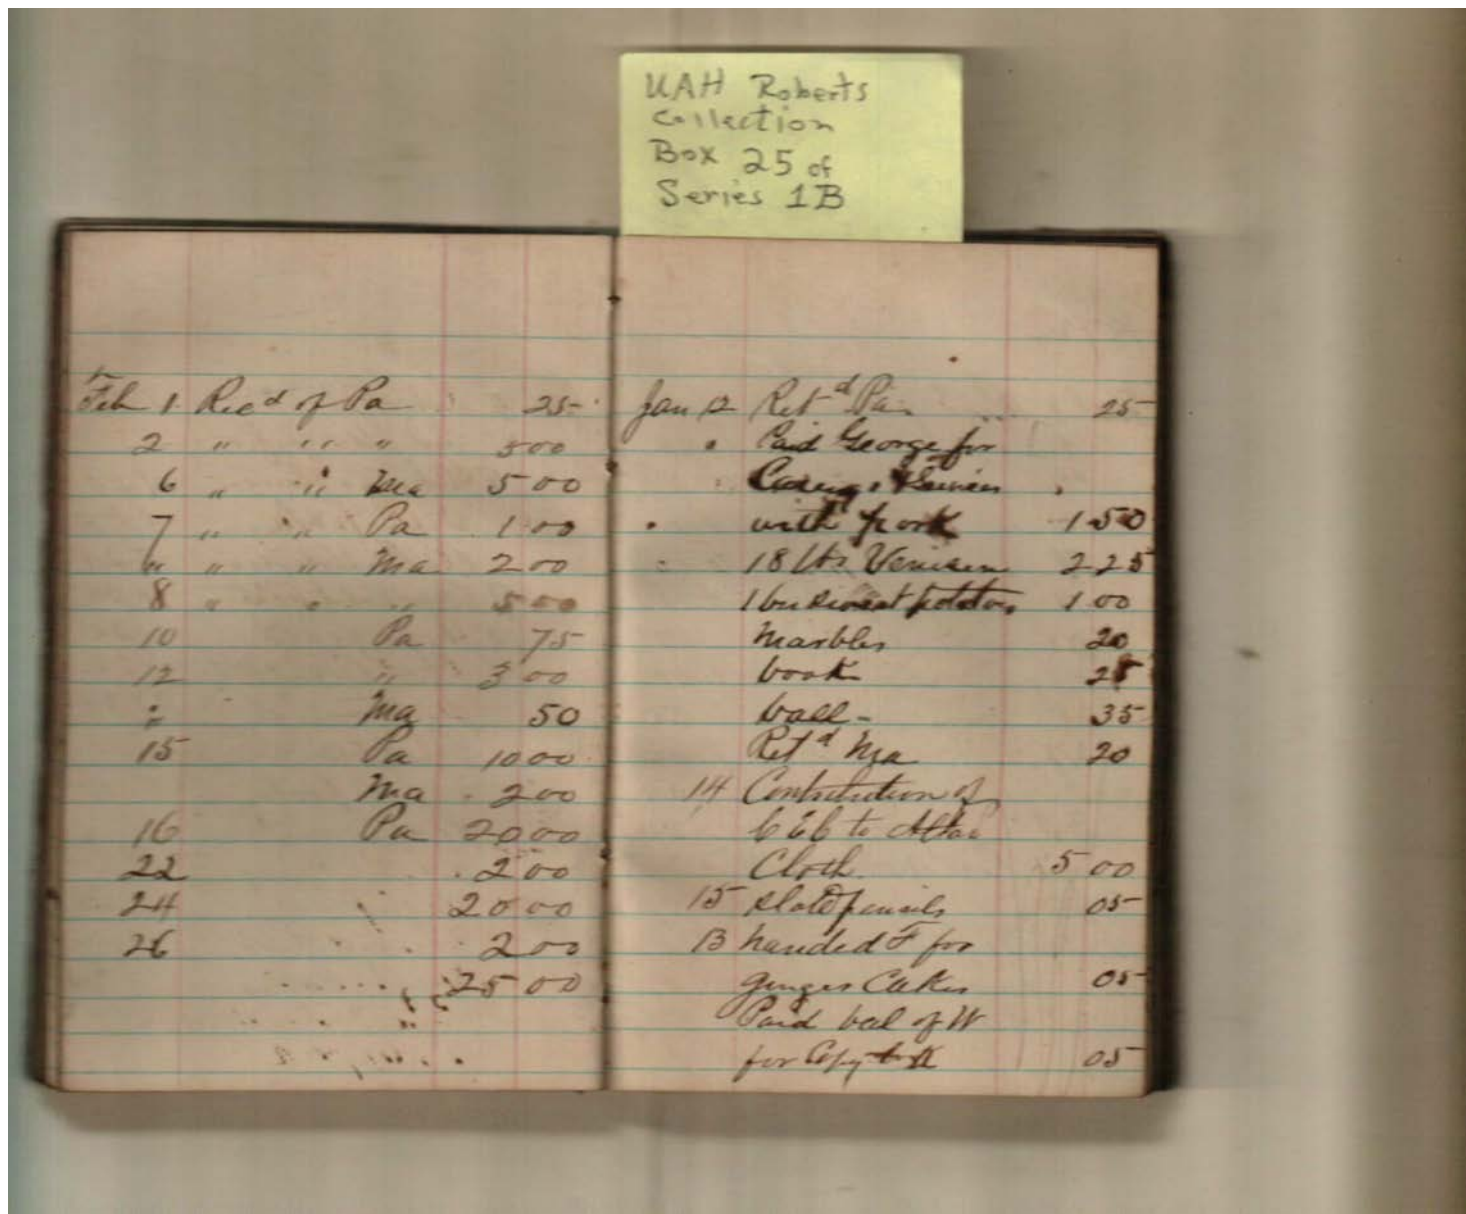 UAH Roberts
Collection
Box 25 of
Series 1B
Feb 1 Rec'd of Pa 25
2 " " " 5 00
6 " " Ma 5 00
7 " " Pa 1 00
" " " Ma 2 00
8 " " " 5 00
10 Pa 75
12 " 3 00
" Ma 50
15 Pa 10 00
Ma 2 00
16 Pa 20 00
22 2 00
24 20 00
26 2 00
25 00
Jan 12 Ret'd Pa 25
" Paid George for
with pork 1 50
18 lbs Venison 2 25
1 bu sweet potatoes 1 00
Marbles 20
book 25
ball - 35
Ret'd Ma 20
14 Contribution of
to Altar
Cloth 5 00
15 slate pencils 05
13 handed F for
ginger Cakes 05
Paid bal of W
for Copy book 05